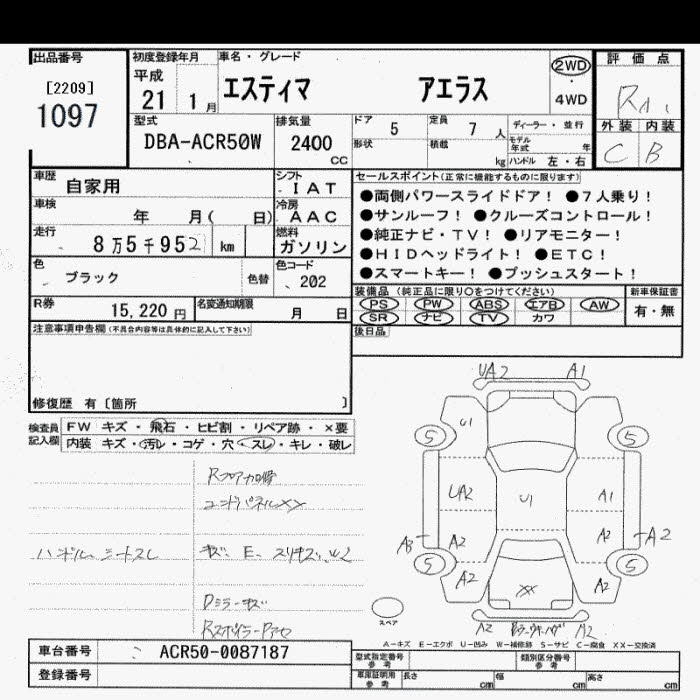 出品番号
[2209]
1097
初度登録年月
平成
21 1月
車名・グレード
エスティマ アエラス
2WD
・
4WD
評価点
外装 内装
C B
型式
DBA-ACR50W
排気量
2400
CC
ドア 5
定員 7人
ディーラー・並行
形状
積載 kg
モデル年式 年
ハンドル 左・右
車歴 自家用
シフト IAT
車検 年 月( 日)
冷房 AAC
走行 8万5千952 km
燃料 ガソリン
色 ブラック 色替
色コード 202
R券 15,220円
名変通知期限 月 日
セールスポイント(正常に機能するものに限ります)
●両側パワースライドドア! ●7人乗り!
●サンルーフ! ●クルーズコントロール!
●純正ナビ・TV! ●リアモニター!
●HIDヘッドライト! ●ETC!
●スマートキー! ●プッシュスタート!
装備品(純正品に限り○をつけてください)
PS PW ABS エアB AW
SR ナビ TV カワ
新車保証書
有・無
注意事項申告欄(不具合内容等は具体的に記入して下さい)
後日品
修復歴 有〔箇所 〕
検査員記入欄
FW キズ・飛石・ヒビ割・リペア跡・×要
内装 キズ・汚レ・コゲ・穴・スレ・キレ・破レ
ハンドル、シートスレ
UA2 A1
U1
5 5
UA2 U1 A1
A3 A2 A2 A2
5 5
A2 XX A2
A2 A2
スペア
A－キズ E－エクボ U－凹み W－補修跡 S－サビ C－腐食 XX－交換済
車台番号 ACR50-0087187
登録番号
型式指定番号 参考
類別区分番号 参考
車庫証明用 参考
長さ cm
幅 cm
高さ cm